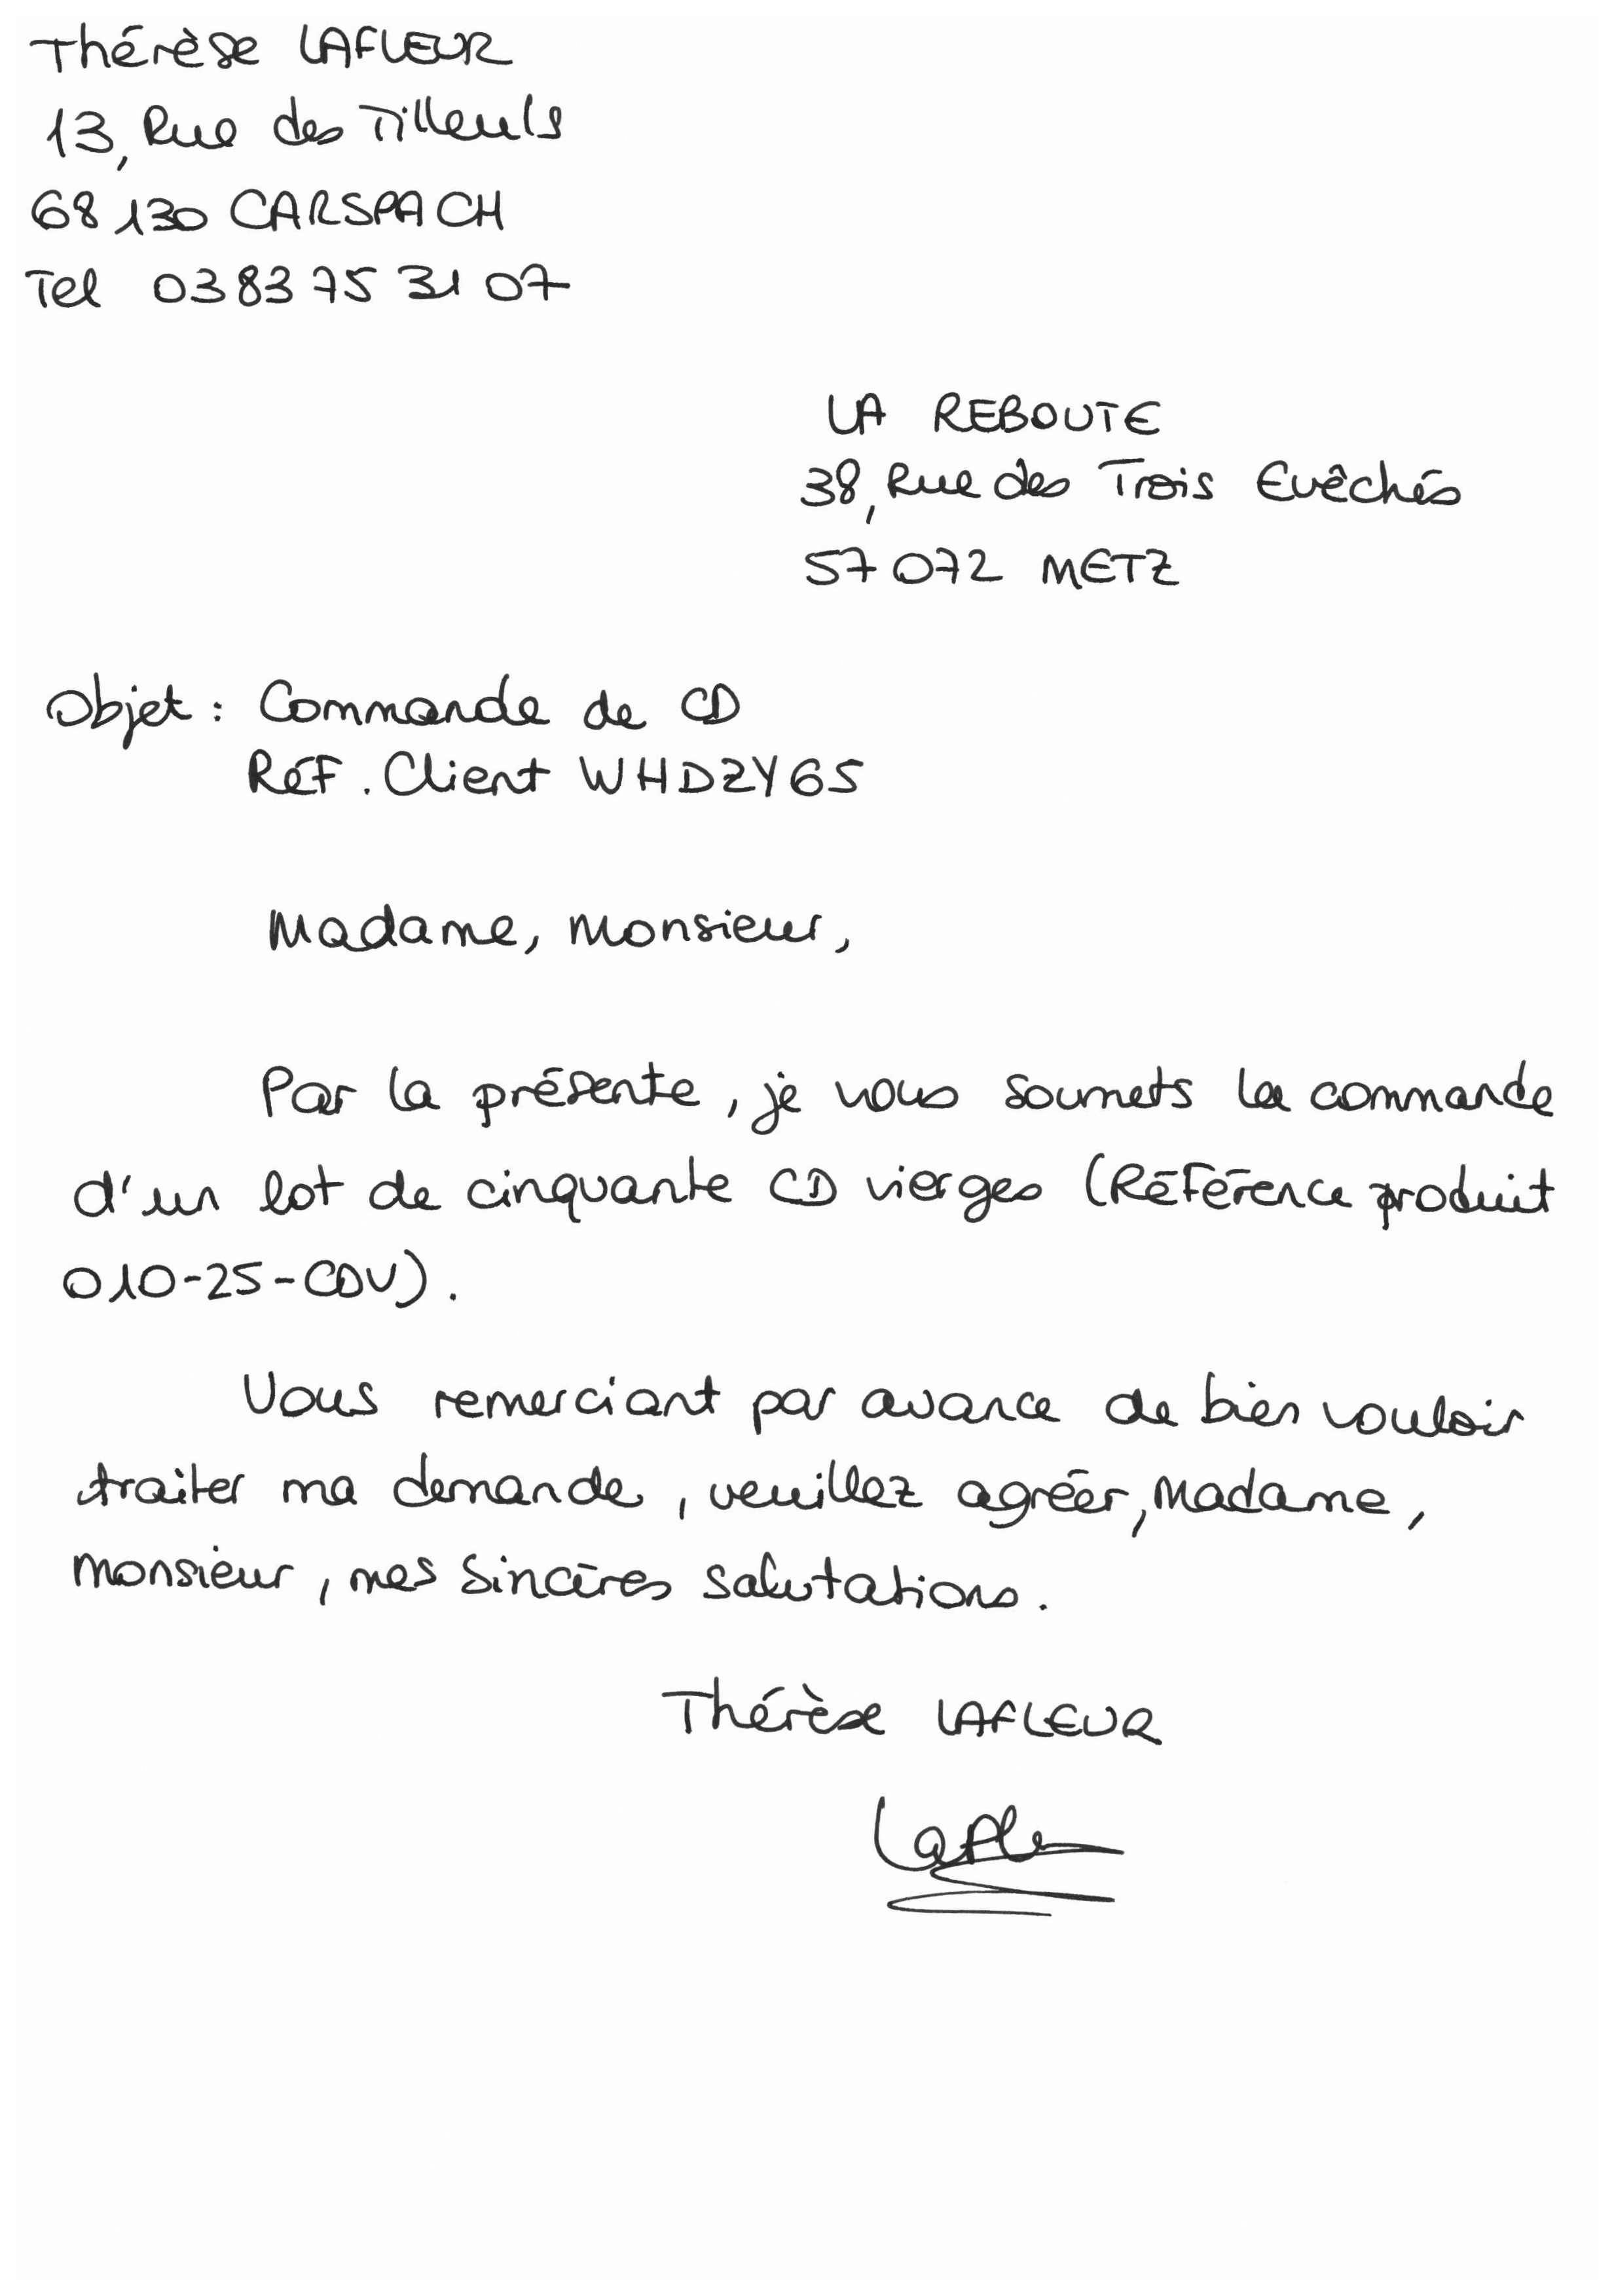 Thérèse LAFLEUR
13, Rue des Tilleuls
68130 CARSPACH
Tel 03 83 75 31 07
LA REBOUTE
38, Rue des Trois Evêchés
57072 METZ
Objet : Commande de CD
Réf. Client WHDZY65
Madame, Monsieur,
Par la présente, je vous soumets la commande
d'un lot de cinquante CD vierges (Référence produit
010-25-CDV).
Vous remerciant par avance de bien vouloir
traiter ma demande, veuillez agréer, Madame,
Monsieur, mes sincères salutations.
Thérèse LAFLEUR